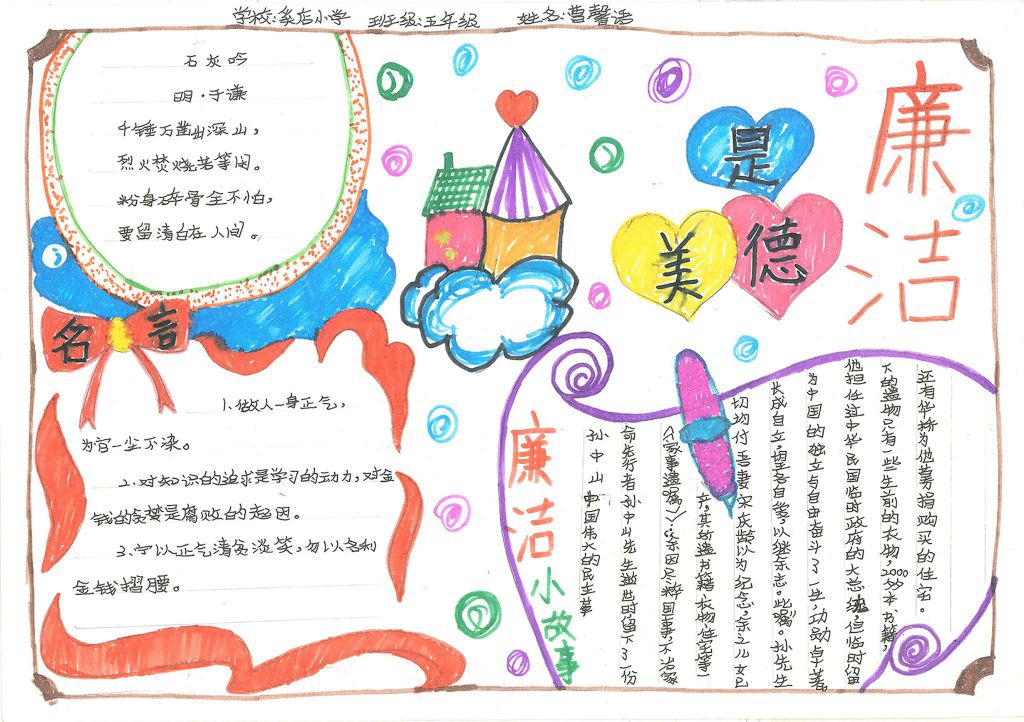 学校: 店小学 班级:五年级 姓名:曹馨语
石灰吟
明·于谦
千锤万凿出深山,
烈火焚烧若等闲。
粉身碎骨全不怕,
要留清白在人间。
廉洁
是
美德
名言
1.做人一身正气,
为官一尘不染。
2.对知识的追求是学习的动力,对金
钱的贪婪是腐败的起因。
3.宁以正气清贫淡笑,勿以名利
金钱摺腰。
廉洁小故事
孙中山中国伟大的民主革
命先行者孙中山先生逝世时留下了一份
《家事遗嘱》:“余因尽瘁国事,不治家
产,其所遗书籍、衣物、住宅等一
切均付吾妻宋庆龄以为纪念,余之儿女已
长成自立,望各自爱,以继余志。此嘱。孙先生
为中国的独立与自由奋斗了一生,功勋卓著。
他担任过中华民国临时政府的大总统,但临时留
下的遗物只有一些生前的衣物,2000多本书籍,
还有华侨为他募捐购买的住宅。